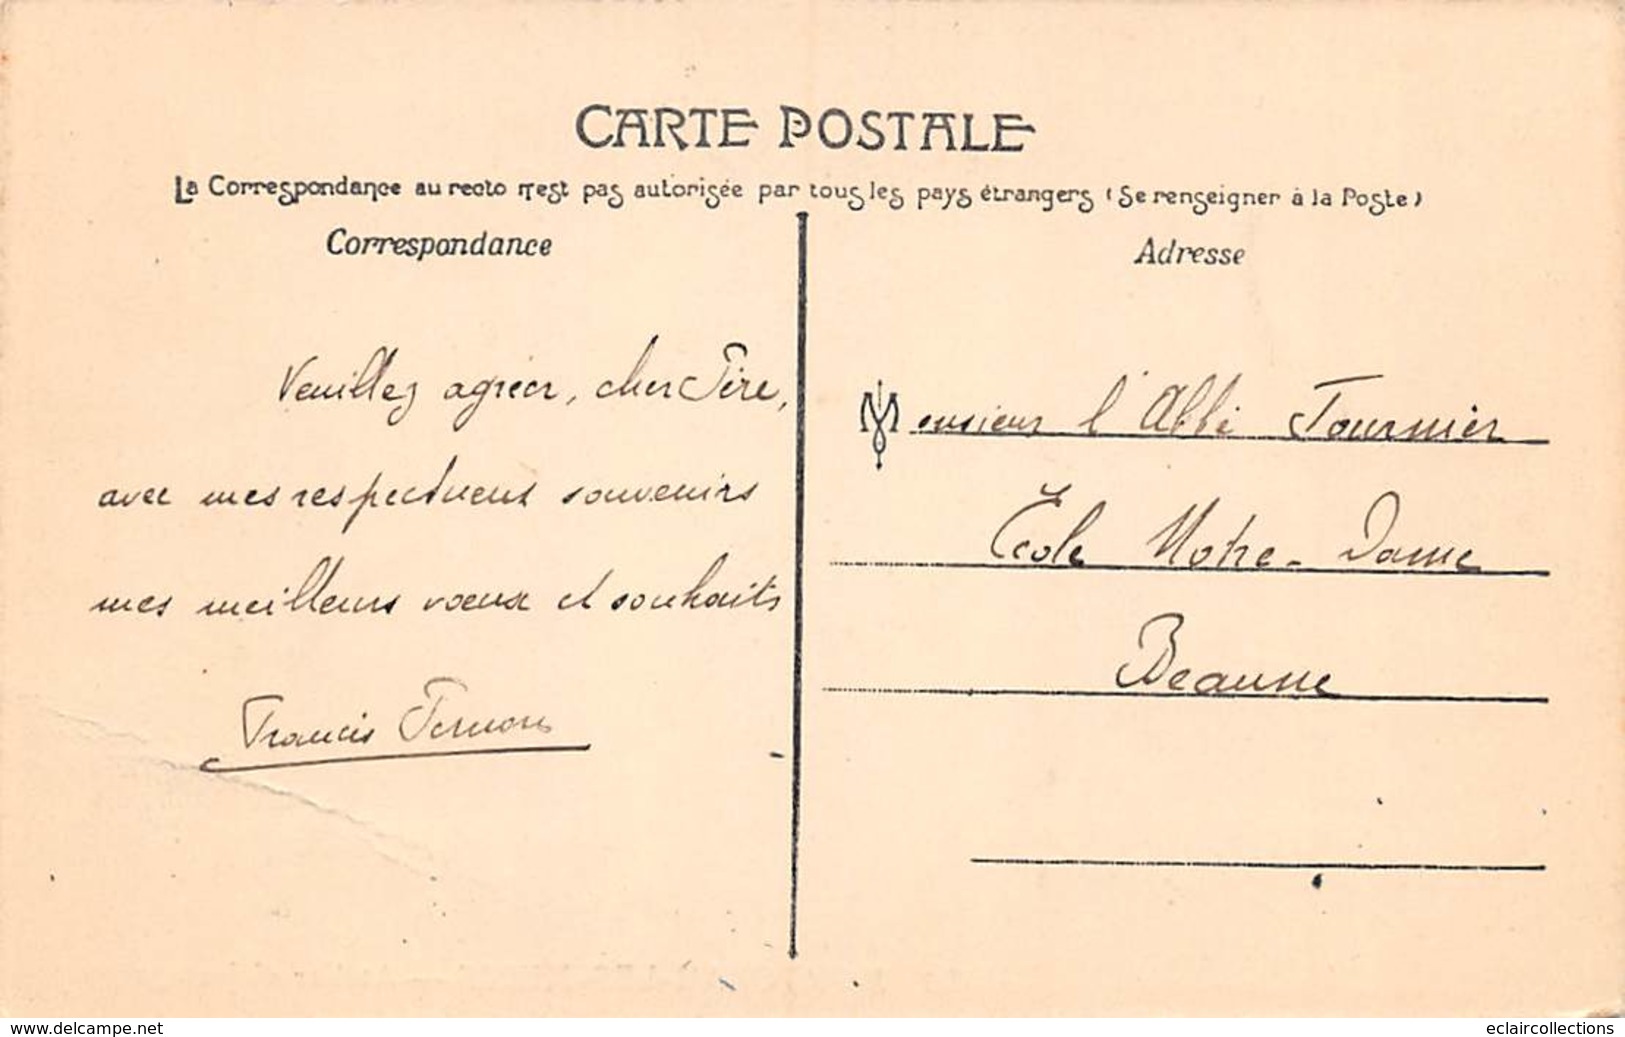 CARTE POSTALE
La Correspondance au recto n'est pas autorisée par tous les pays étrangers (Se renseigner à la Poste)
Correspondance
Veuillez agréer, cher Père,
avec mes respectueux souvenirs
mes meilleurs vœux et souhaits
Francis
Adresse
Monsieur l'Abbé Tournier
École Notre-Dame
Beaune
www.delcampe.net
eclaircollections